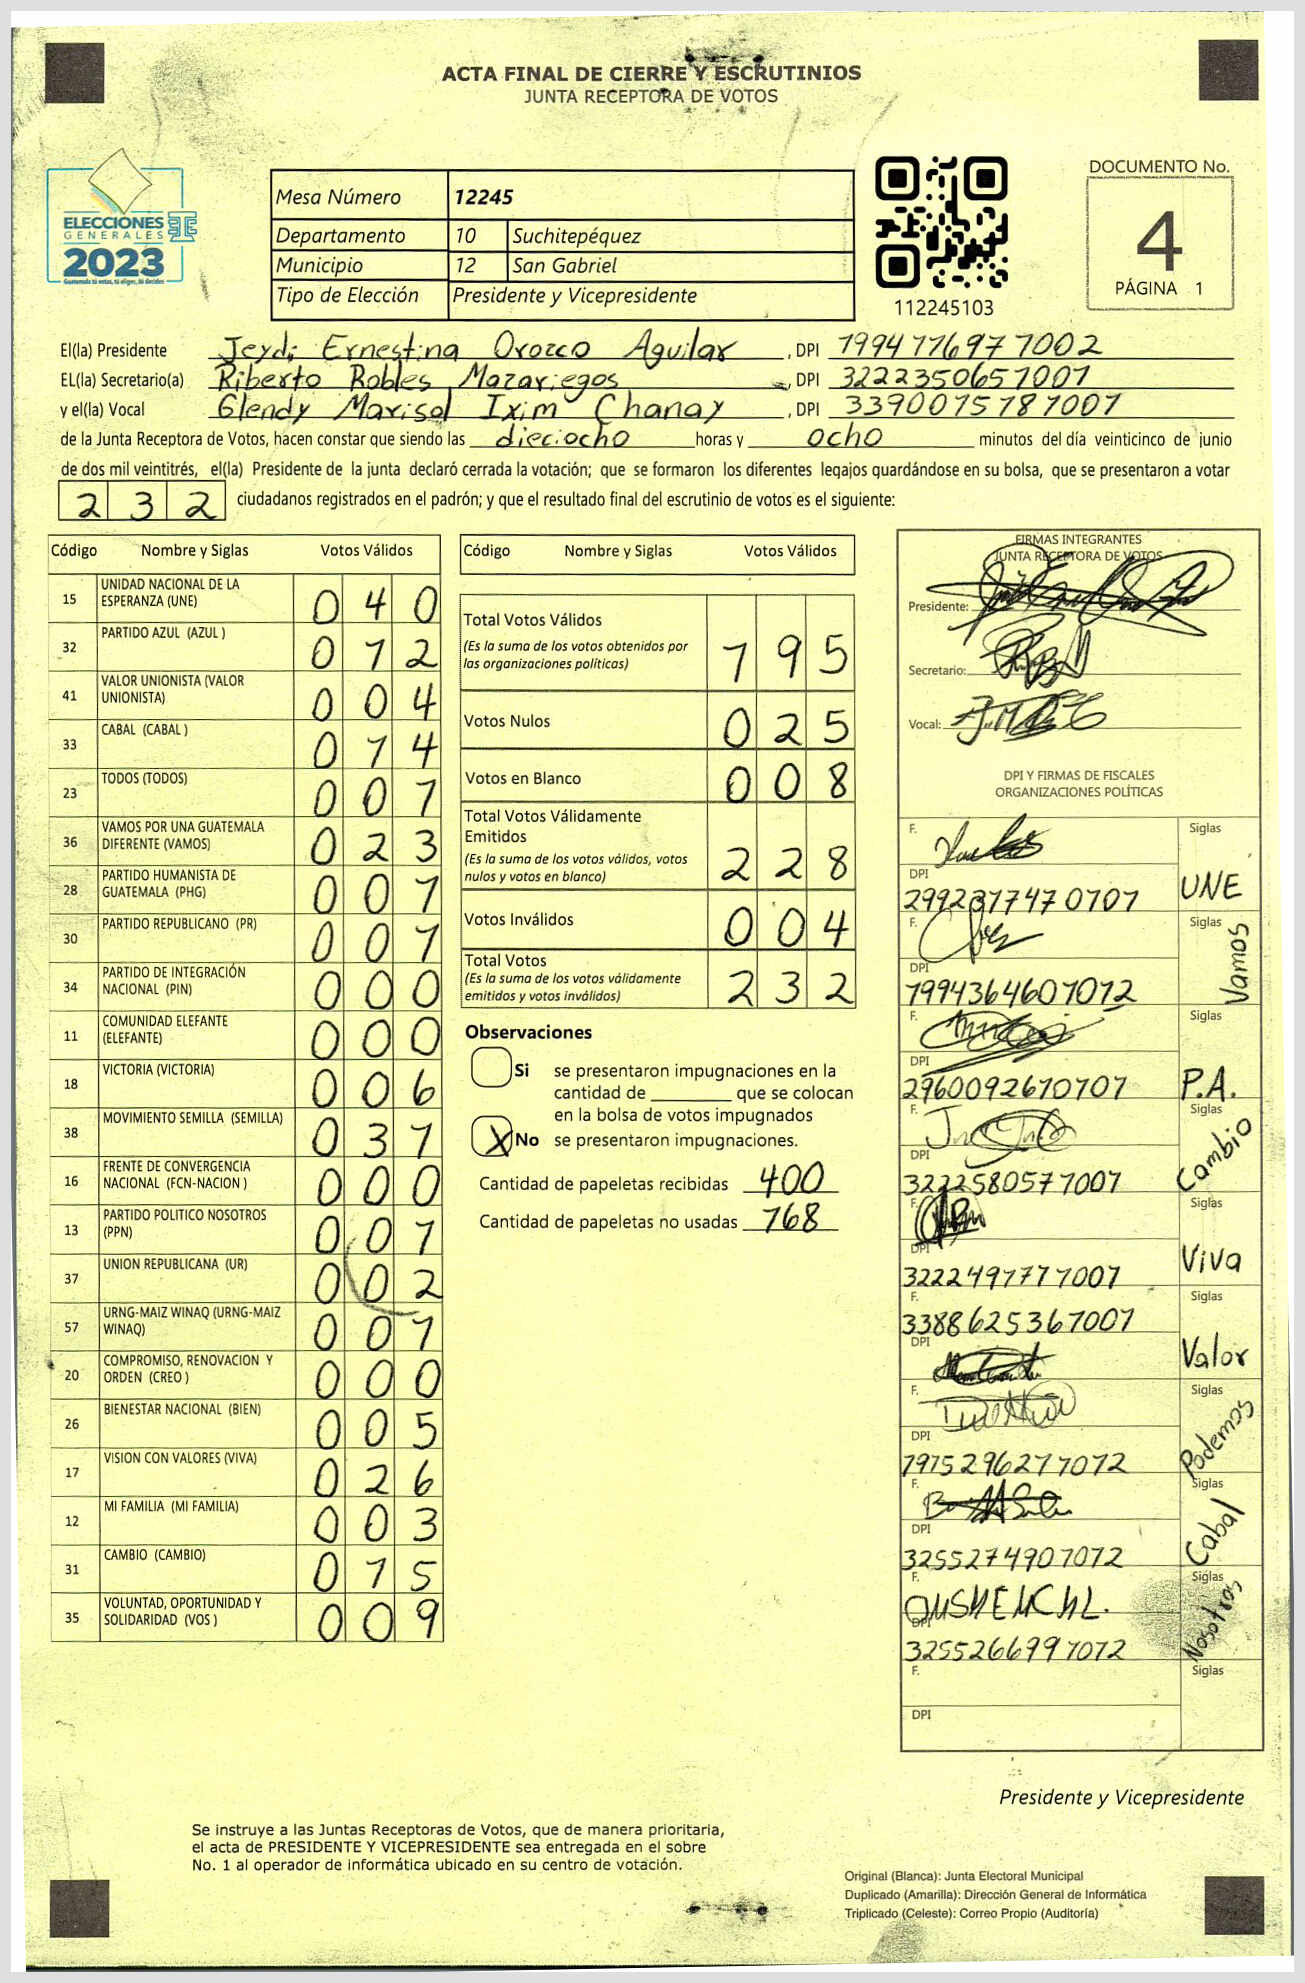 ACTA FINAL DE CIERRE Y ESCRUTINIOS
JUNTA RECEPTORA DE VOTOS
ELECCIONES
GENERALES
2023
Guatemala tú votas, tú eliges, tú decides
Mesa Número 12245
Departamento 10 Suchitepéquez
Municipio 12 San Gabriel
Tipo de Elección Presidente y Vicepresidente
112245103
DOCUMENTO No.
4
PÁGINA 1
El(la) Presidente Jeydi Ernestina Orozco Aguilar , DPI 1994116971002
EL(la) Secretario(a) Riberto Robles Mazariegos , DPI 3222350651001
y el(la) Vocal Glendy Marisol Ixim Chanay , DPI 3390015781001
de la Junta Receptora de Votos, hacen constar que siendo las dieciocho horas y ocho minutos del día veinticinco de junio
de dos mil veintitrés, el(la) Presidente de la junta declaró cerrada la votación; que se formaron los diferentes legajos guardándose en su bolsa, que se presentaron a votar
232 ciudadanos registrados en el padrón; y que el resultado final del escrutinio de votos es el siguiente:
Código Nombre y Siglas Votos Válidos
15 UNIDAD NACIONAL DE LA ESPERANZA (UNE) 040
32 PARTIDO AZUL (AZUL ) 012
41 VALOR UNIONISTA (VALOR UNIONISTA) 004
33 CABAL (CABAL ) 014
23 TODOS (TODOS) 001
36 VAMOS POR UNA GUATEMALA DIFERENTE (VAMOS) 023
28 PARTIDO HUMANISTA DE GUATEMALA (PHG) 001
30 PARTIDO REPUBLICANO (PR) 001
34 PARTIDO DE INTEGRACIÓN NACIONAL (PIN) 000
11 COMUNIDAD ELEFANTE (ELEFANTE) 000
18 VICTORIA (VICTORIA) 006
38 MOVIMIENTO SEMILLA (SEMILLA) 031
16 FRENTE DE CONVERGENCIA NACIONAL (FCN-NACION ) 000
13 PARTIDO POLITICO NOSOTROS (PPN) 001
37 UNION REPUBLICANA (UR) 002
57 URNG-MAIZ WINAQ (URNG-MAIZ WINAQ) 001
20 COMPROMISO, RENOVACION Y ORDEN (CREO ) 000
26 BIENESTAR NACIONAL (BIEN) 005
17 VISION CON VALORES (VIVA) 026
12 MI FAMILIA (MI FAMILIA) 003
31 CAMBIO (CAMBIO) 015
35 VOLUNTAD, OPORTUNIDAD Y SOLIDARIDAD (VOS ) 009
Código Nombre y Siglas Votos Válidos
Total Votos Válidos 195
(Es la suma de los votos obtenidos por
las organizaciones políticas)
Votos Nulos 025
Votos en Blanco 008
Total Votos Válidamente
Emitidos 228
(Es la suma de los votos válidos, votos
nulos y votos en blanco)
Votos Inválidos 004
Total Votos 232
(Es la suma de los votos válidamente
emitidos y votos inválidos)
Observaciones
Si se presentaron impugnaciones en la
cantidad de ________ que se colocan
en la bolsa de votos impugnados
X No se presentaron impugnaciones.
Cantidad de papeletas recibidas 400
Cantidad de papeletas no usadas 168
FIRMAS INTEGRANTES
JUNTA RECEPTORA DE VOTOS
Presidente:
Secretario:
Vocal:
DPI Y FIRMAS DE FISCALES
ORGANIZACIONES POLÍTICAS
F. Siglas
DPI UNE
2992317470101
F. Siglas
DPI Vamos
1994364601012
F. Siglas
DPI P.A.
2960092610101
F. Siglas
DPI Cambio
3222580571001
F. Siglas
DPI Viva
3222491771001
F. Siglas
3388625361001
DPI Valor
F. Siglas
DPI Podemos
1915296271012
F. Siglas
DPI Cabal
3255274901012
F. Siglas
DPI Nosotros
3255266991012
F. Siglas
DPI
Presidente y Vicepresidente
Se instruye a las Juntas Receptoras de Votos, que de manera prioritaria,
el acta de PRESIDENTE Y VICEPRESIDENTE sea entregada en el sobre
No. 1 al operador de informática ubicado en su centro de votación.
Original (Blanca): Junta Electoral Municipal
Duplicado (Amarilla): Dirección General de Informática
Triplicado (Celeste): Correo Propio (Auditoría)